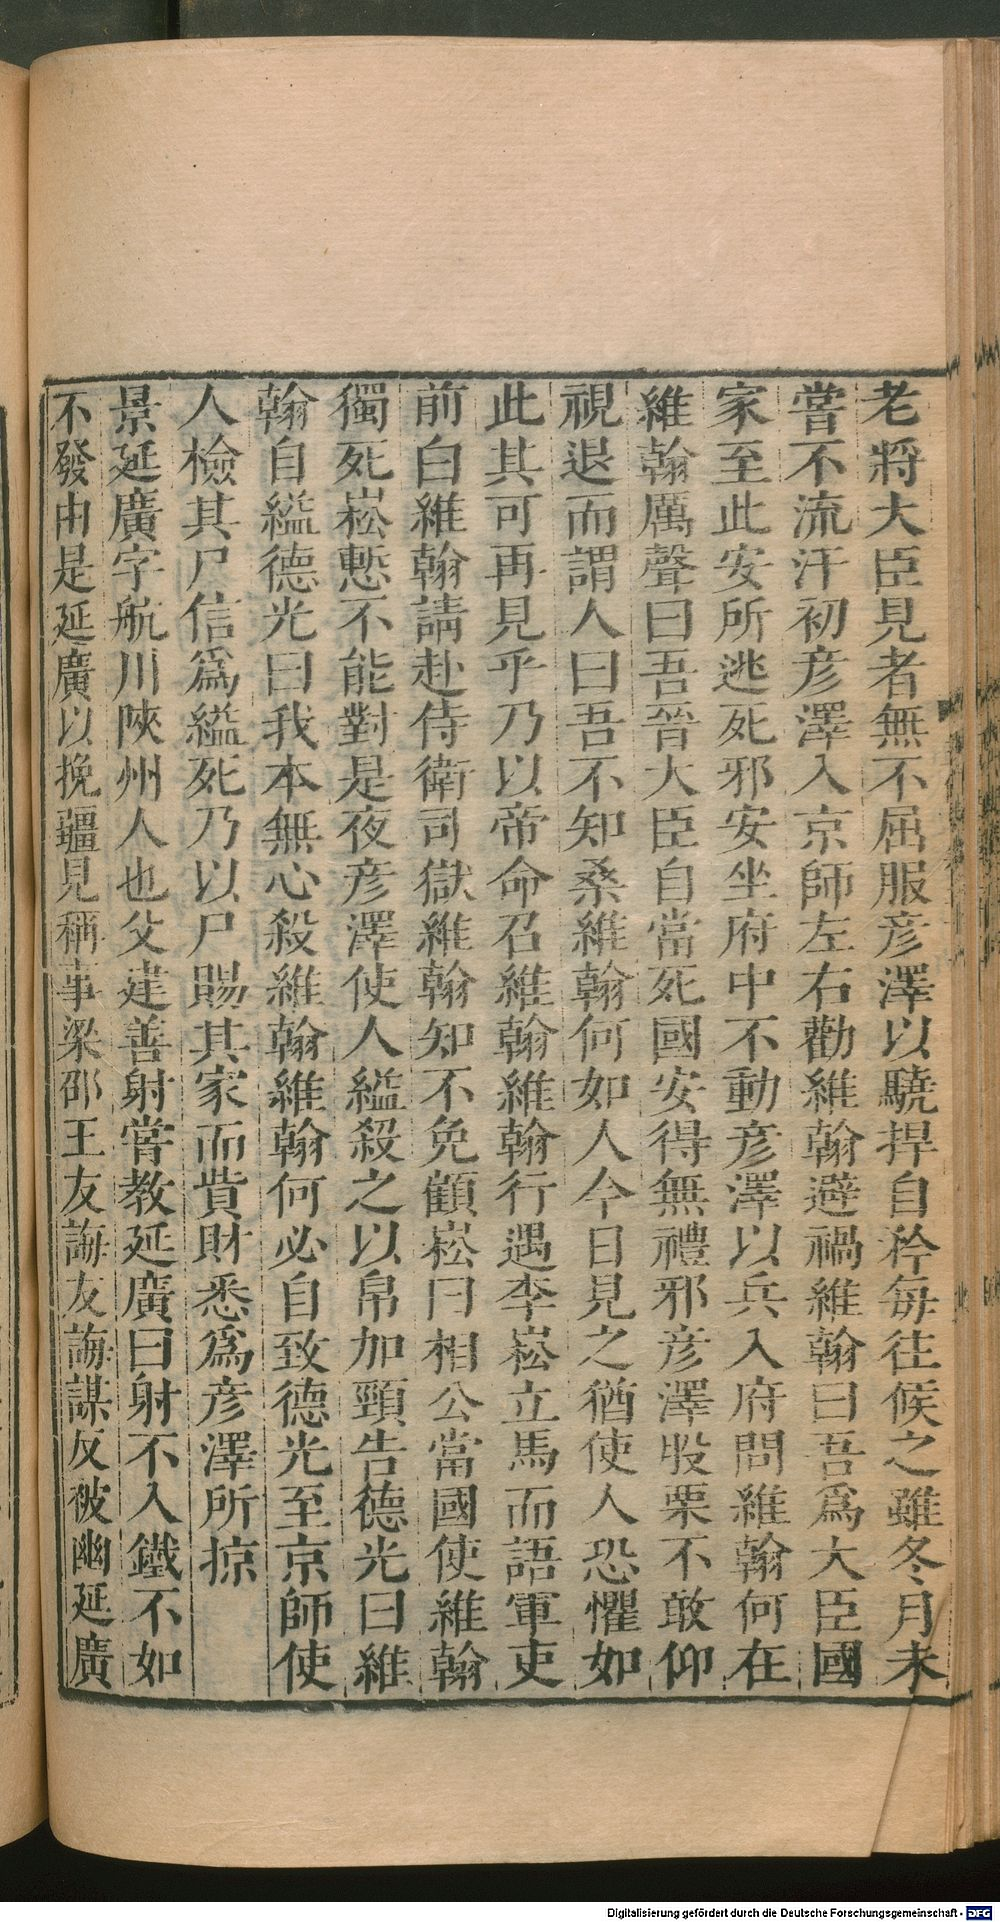 老將大臣見者無不屈服彦澤以驍捍自矜每往候之雖冬月未
嘗不流汗初彦澤入京師左右勸維翰避禍維翰曰吾爲大臣國
家至此安所逃死邪安坐府中不動彦澤以兵入府問維翰何在
維翰厲聲曰吾晉大臣自當死國安得無禮邪彦澤股栗不敢仰
視退而謂人曰吾不知桑維翰何如人今日見之猶使人恐懼如
此其可再見乎乃以帝命召維翰維翰行遇李崧立馬而語軍吏
前白維翰請赴侍衛司獄維翰知不免顧崧曰相公當國使維翰
獨死崧慙不能對是夜彦澤使人縊殺之以帛加頸告德光曰維
翰自縊德光曰我本無心殺維翰維翰何必自致德光至京師使
人檢其尸信爲縊死乃以尸賜其家而貲財悉爲彦澤所掠
景延廣字航川陝州人也父建善射嘗教延廣曰射不入鐵不如
不發由是延廣以挽彊見稱事梁邵王友誨友誨謀反被幽延廣
Digitalisierung gefördert durch die Deutsche Forschungsgemeinschaft - DFG